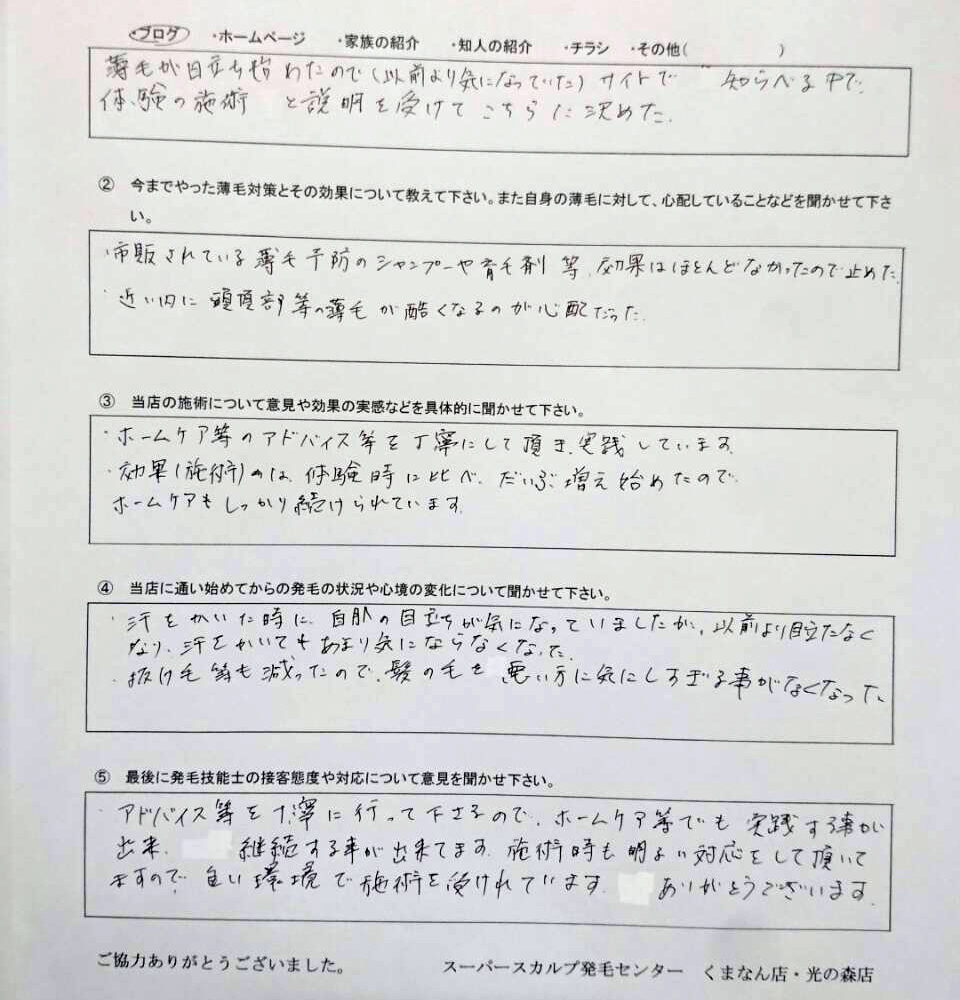 ・ブログ ・ホームページ ・家族の紹介 ・知人の紹介 ・チラシ ・その他( )
薄毛が目立ち始めたので(以前より気になっていた)サイトで 知らべる中で、
体験の施術 と説明を受けてこちらに決めた。
② 今までやった薄毛対策とその効果について教えて下さい。また自身の薄毛に対して、心配していることなどを聞かせて下さ
い。
・市販されている薄毛予防のシャンプーや育毛剤等、効果はほとんどなかったので止めた
・近い内に頭頂部等の薄毛が酷くなるのが心配だった。
③ 当店の施術について意見や効果の実感などを具体的に聞かせて下さい。
・ホームケア等のアドバイス等を丁寧にして頂き、実践しています。
・効果(施術)のは、体験時に比べ、だいぶ増え始めたので、
ホームケアもしっかり続けられています。
④ 当店に通い始めてからの発毛の状況や心境の変化について聞かせて下さい。
・汗をかいた時に、白肌の目立ちが気になっていましたが、以前より目立たなく
なり、汗をかいてもあまり気にならなくなった。
・抜け毛等も減ったので、髪の毛を悪い方に気にしすぎる事がなくなった
⑤ 最後に発毛技能士の接客態度や対応について意見を聞かせ下さい。
・アドバイス等を丁寧に行って下さるので、ホームケア等でも実践する事が
出来、 継続する事が出来てます。施術時も明るい対応をして頂いて
ますので、良い環境で施術を受けれています。 ありがとうございます。
ご協力ありがとうございました。 スーパースカルプ発毛センター くまなん店・光の森店